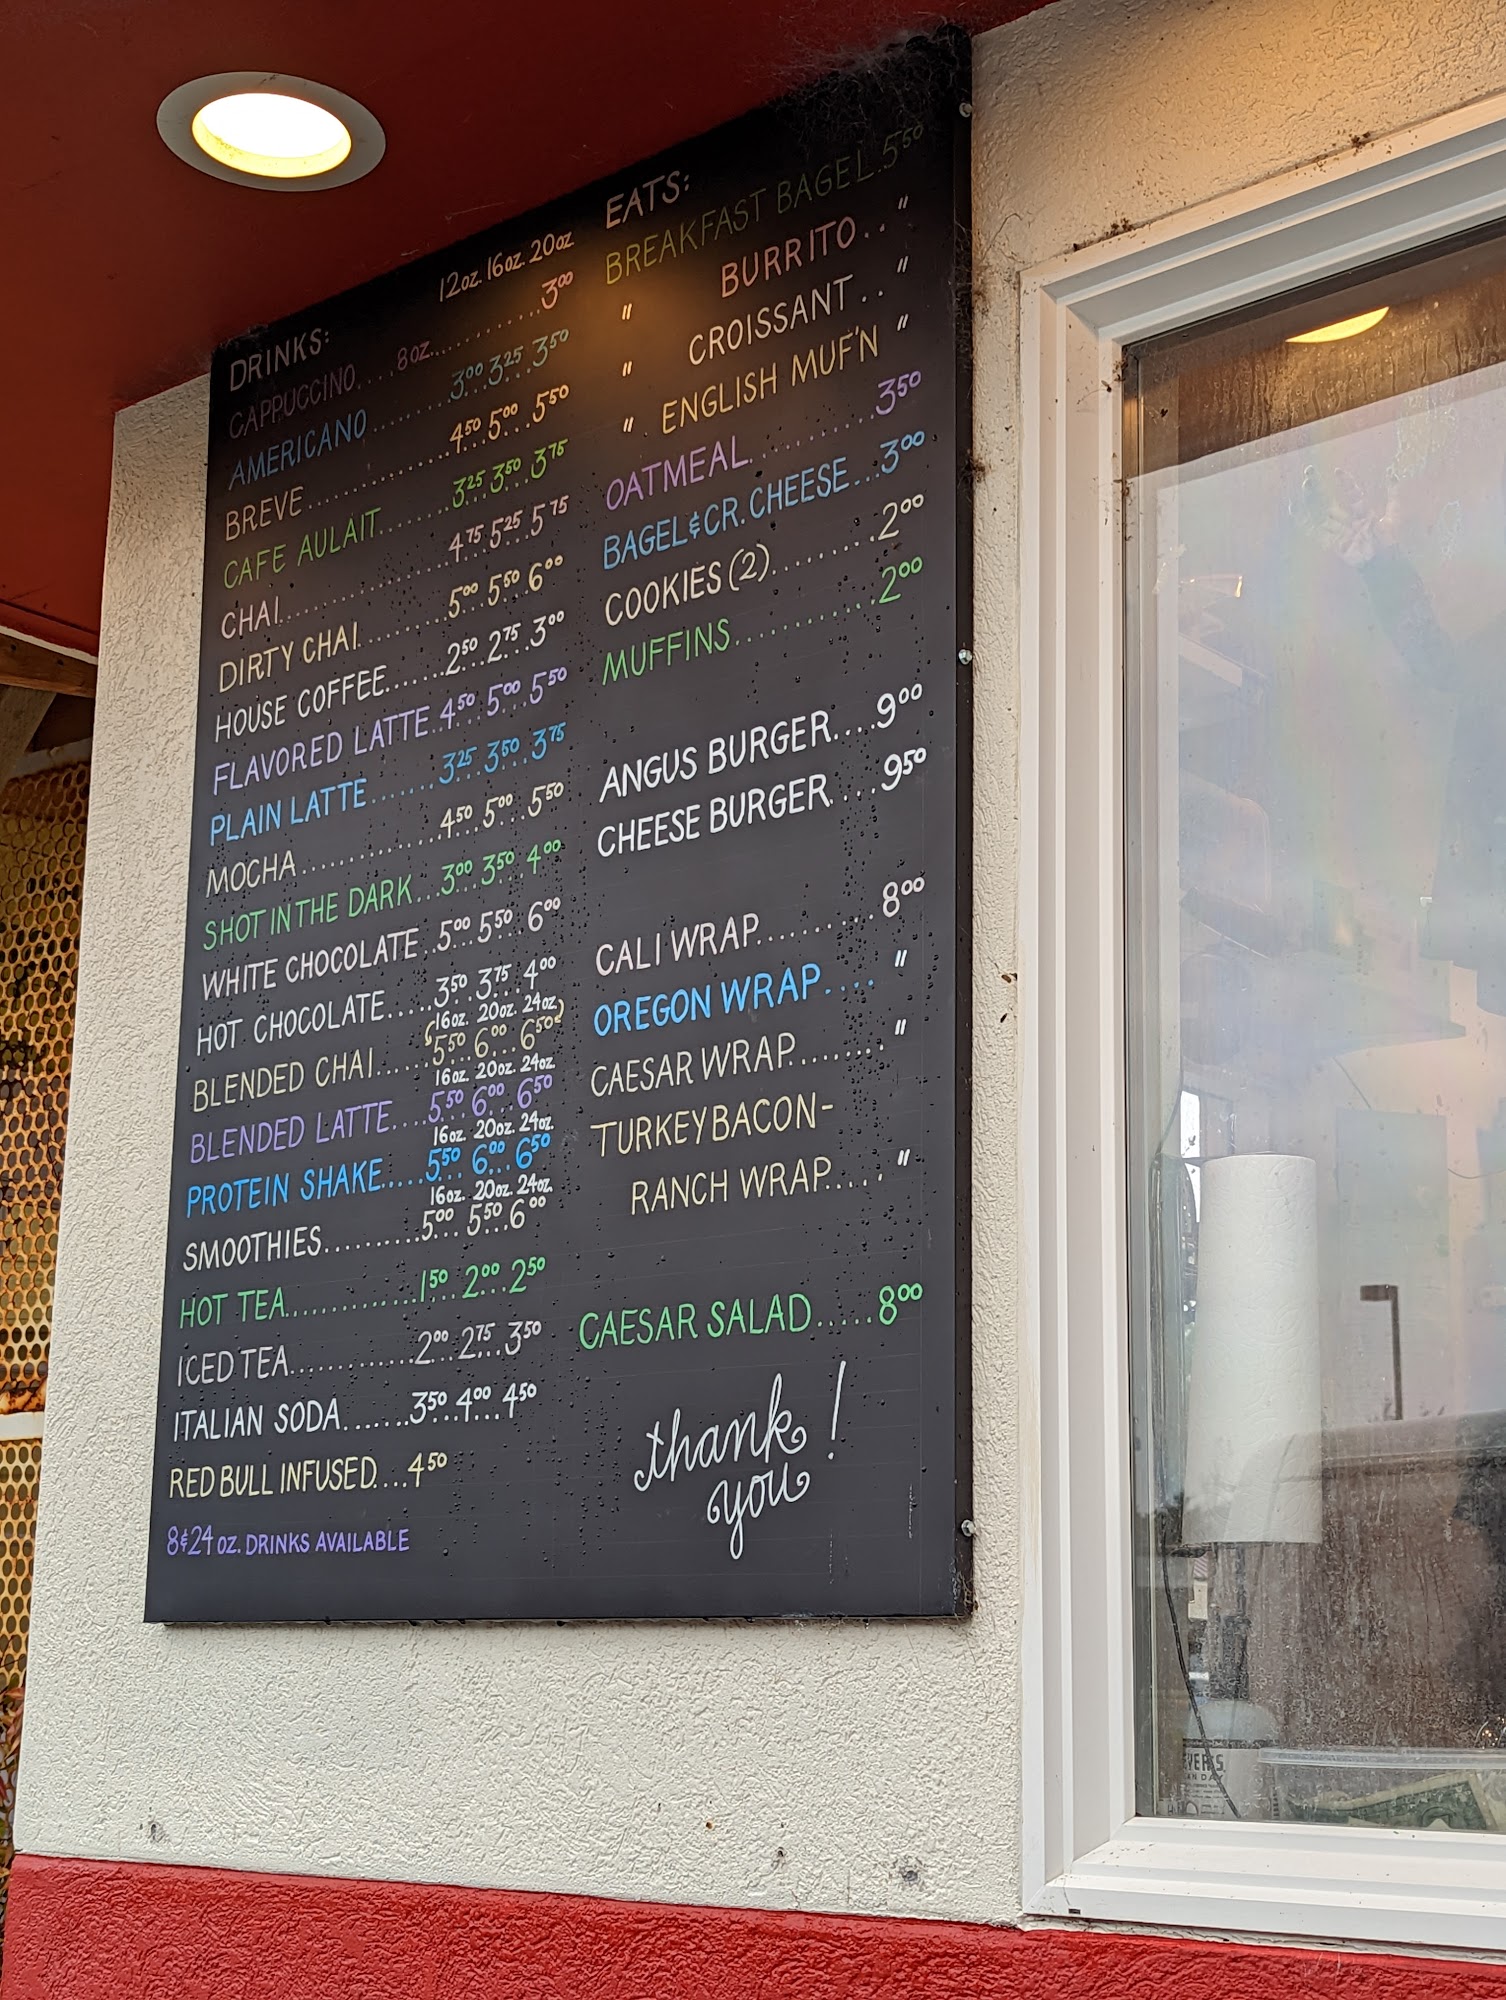 DRINKS:
12oz. 16oz. 20oz
CAPPUCCINO....8oz..............3⁰⁰
AMERICANO.........3⁰⁰...3²⁵...3⁵⁰
BREVE................4⁵⁰...5⁰⁰...5⁵⁰
CAFE AULAIT........3²⁵...3⁵⁰...3⁷⁵
CHAI....................4⁷⁵...5²⁵...5⁷⁵
DIRTY CHAI..........5⁰⁰...5⁵⁰...6⁰⁰
HOUSE COFFEE.......2⁵⁰...2⁷⁵...3⁰⁰
FLAVORED LATTE..4⁵⁰...5⁰⁰...5⁵⁰
PLAIN LATTE........3²⁵...3⁵⁰...3⁷⁵
MOCHA................4⁵⁰...5⁰⁰...5⁵⁰
SHOT IN THE DARK...3⁰⁰...3⁵⁰...4⁰⁰
WHITE CHOCOLATE..5⁰⁰...5⁵⁰...6⁰⁰
HOT CHOCOLATE.....3⁵⁰...3⁷⁵...4⁰⁰
(16oz. 20oz. 24oz.)
BLENDED CHAI......5⁵⁰...6⁰⁰...6⁵⁰
16oz. 20oz. 24oz.
BLENDED LATTE....5⁵⁰...6⁰⁰...6⁵⁰
16oz. 20oz. 24oz.
PROTEIN SHAKE.....5⁵⁰...6⁰⁰...6⁵⁰
16oz. 20oz. 24oz.
SMOOTHIES..........5⁰⁰...5⁵⁰...6⁰⁰
HOT TEA..............1⁵⁰...2⁰⁰...2⁵⁰
ICED TEA.............2⁰⁰...2⁷⁵...3⁵⁰
ITALIAN SODA.......3⁵⁰...4⁰⁰...4⁵⁰
RED BULL INFUSED....4⁵⁰
8&24 oz. DRINKS AVAILABLE
EATS:
BREAKFAST BAGEL.5⁵⁰
" BURRITO.. "
" CROISSANT.. "
" ENGLISH MUF'N "
OATMEAL..........3⁵⁰
BAGEL & CR. CHEESE...3⁰⁰
COOKIES (2)........2⁰⁰
MUFFINS...........2⁰⁰
ANGUS BURGER....9⁰⁰
CHEESE BURGER....9⁵⁰
CALI WRAP.........8⁰⁰
OREGON WRAP.... "
CAESAR WRAP........ "
TURKEY BACON-
RANCH WRAP..... "
CAESAR SALAD.....8⁰⁰
thank
you!